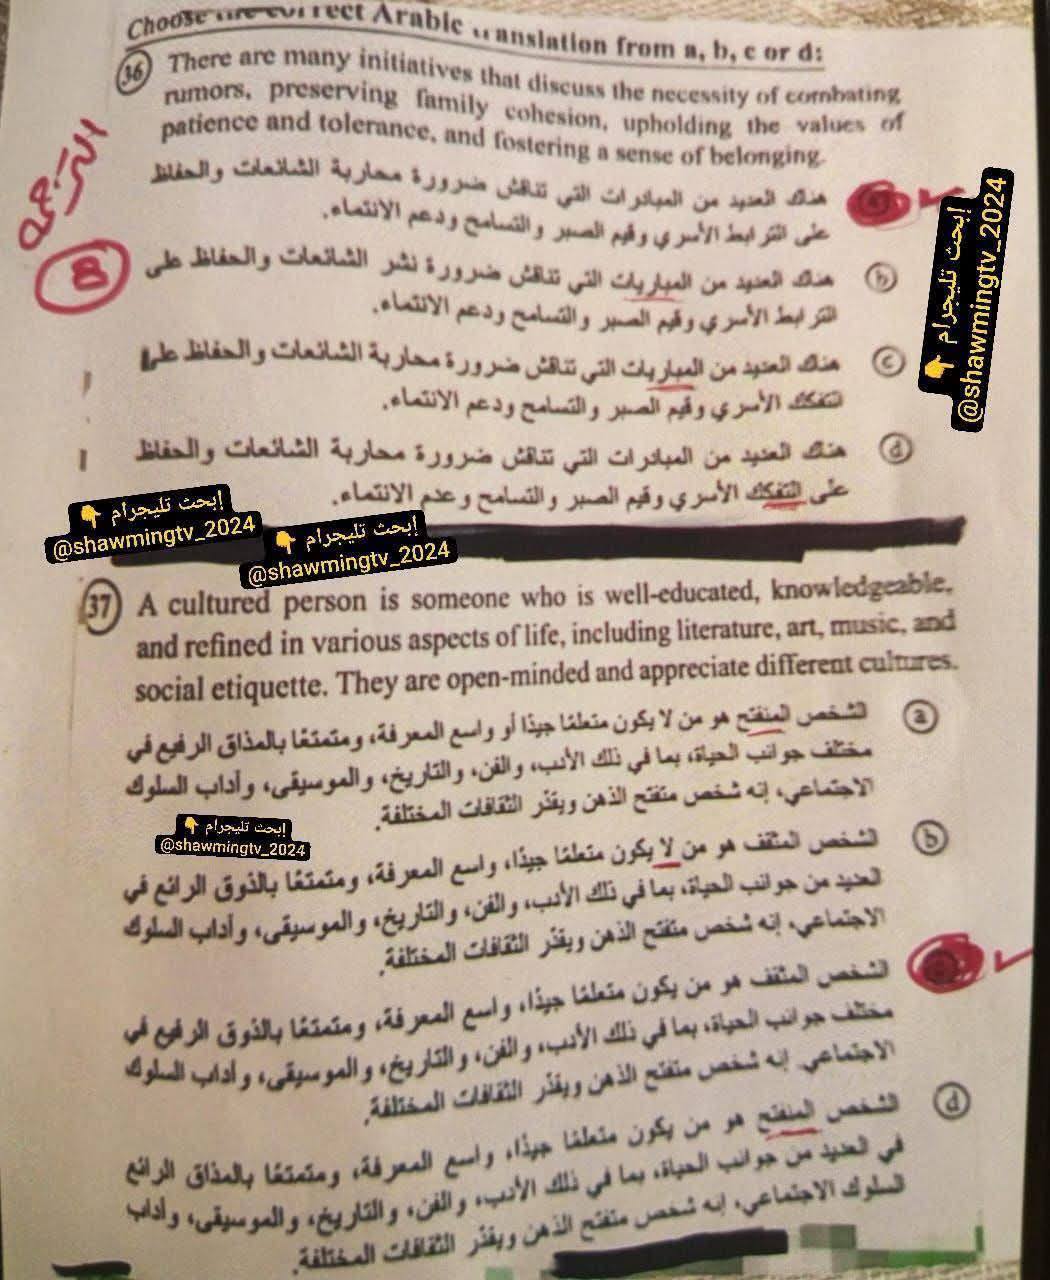 Choose the correct Arabic translation from a, b, c or d:
36 There are many initiatives that discuss the necessity of combating
rumors, preserving family cohesion, upholding the values of
patience and tolerance, and fostering a sense of belonging.
هناك العديد من المبادرات التي تناقش ضرورة محاربة الشائعات والحفاظ
على الترابط الأسري وقيم الصبر والتسامح ودعم الانتماء.
b هناك العديد من المباريات التي تناقش ضرورة نشر الشائعات والحفاظ على
الترابط الأسري وقيم الصبر والتسامح ودعم الانتماء.
c هناك العديد من المباريات التي تناقش ضرورة محاربة الشائعات والحفاظ على
التفكك الأسري وقيم الصبر والتسامح ودعم الانتماء.
d هناك العديد من المبادرات التي تناقش ضرورة محاربة الشائعات والحفاظ
على التفكك الأسري وقيم الصبر والتسامح وعدم الانتماء.
الترجمة
8
إبحث تليجرام 👇
@shawmingtv_2024
إبحث تليجرام 👇
@shawmingtv_2024
إبحث تليجرام 👇
@shawmingtv_2024
37 A cultured person is someone who is well-educated, knowledgeable,
and refined in various aspects of life, including literature, art, music, and
social etiquette. They are open-minded and appreciate different cultures.
a الشخص المنفتح هو من لا يكون متعلمًا جيدًا أو واسع المعرفة، ومتمتعًا بالمذاق الرفيع في
مختلف جوانب الحياة، بما في ذلك الأدب، والفن، والتاريخ، والموسيقى، وآداب السلوك
الاجتماعي، إنه شخص متفتح الذهن ويقدّر الثقافات المختلفة.
إبحث تليجرام 👇
@shawmingtv_2024
b الشخص المثقف هو من لا يكون متعلمًا جيدًا، واسع المعرفة، ومتمتعًا بالذوق الرائع في
العديد من جوانب الحياة، بما في ذلك الأدب، والفن، والتاريخ، والموسيقى، وآداب السلوك
الاجتماعي، إنه شخص متفتح الذهن ويقدّر الثقافات المختلفة.
الشخص المثقف هو من يكون متعلمًا جيدًا، واسع المعرفة، ومتمتعًا بالذوق الرفيع في
مختلف جوانب الحياة، بما في ذلك الأدب، والفن، والتاريخ، والموسيقى، وآداب السلوك
الاجتماعي. إنه شخص متفتح الذهن ويقدّر الثقافات المختلفة.
d الشخص المنفتح هو من يكون متعلمًا جيدًا، واسع المعرفة، ومتمتعًا بالمذاق الرائع
في العديد من جوانب الحياة، بما في ذلك الأدب، والفن، والتاريخ، والموسيقى، وآداب
السلوك الاجتماعي، إنه شخص متفتح الذهن ويقدّر الثقافات المختلفة.